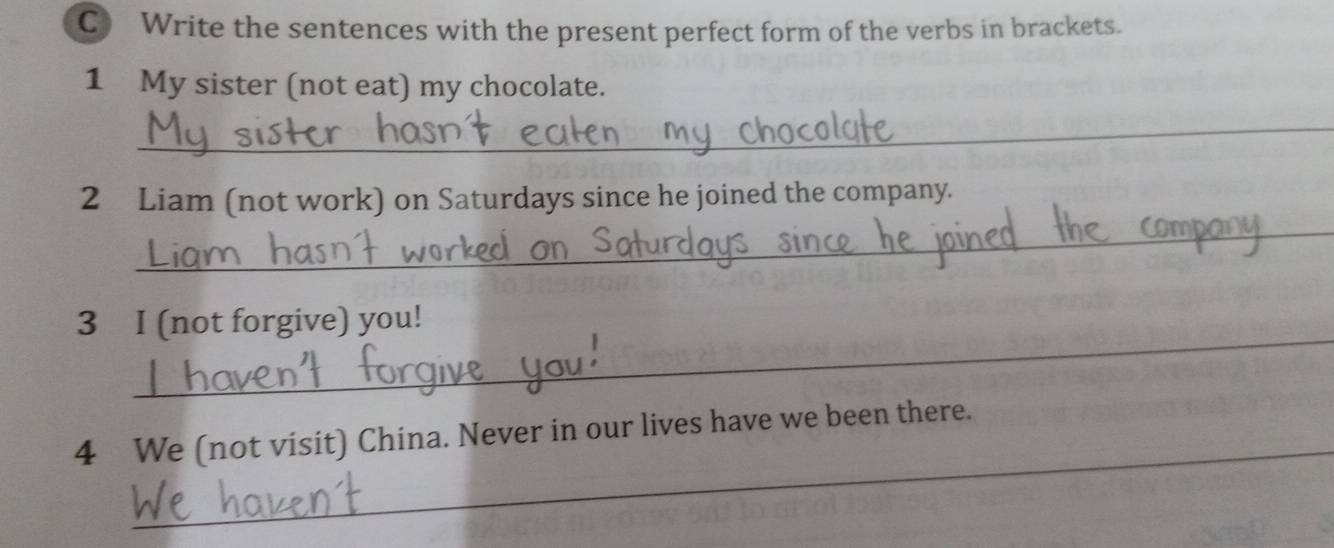 C Write the sentences with the present perfect form of the verbs in brackets.
1 My sister (not eat) my chocolate.
My sister hasn't eaten my chocolate
2 Liam (not work) on Saturdays since he joined the company.
Liam hasn't worked on Saturdays since he joined the company
3 I (not forgive) you!
I haven't forgive you!
4 We (not visit) China. Never in our lives have we been there.
We haven't